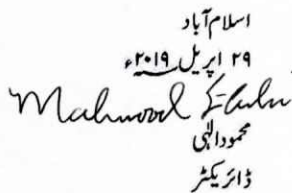 اسلام آباد
۲۹ اپریل ۲۰۱۹ء
Mahmood Elahi
محمود الٰہی
ڈائریکٹر